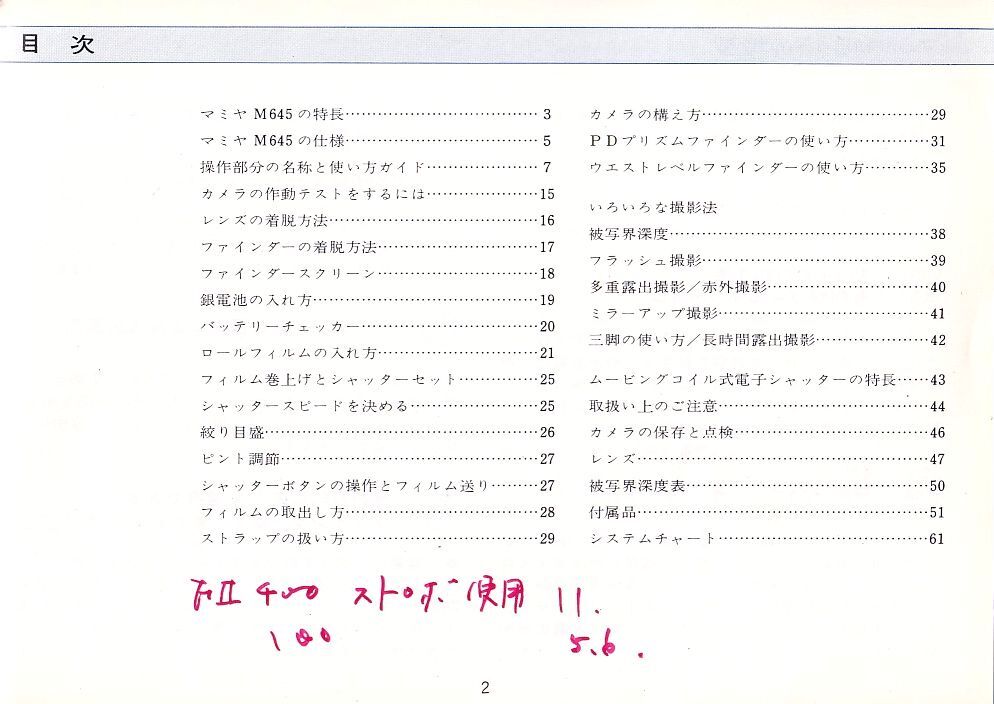 目 次
マミヤ M645 の特長……………………………3
マミヤ M645 の仕様……………………………5
操作部分の名称と使い方ガイド………………7
カメラの作動テストをするには………………15
レンズの着脱方法………………………………16
ファインダーの着脱方法………………………17
ファインダースクリーン………………………18
銀電池の入れ方…………………………………19
バッテリーチェッカー…………………………20
ロールフィルムの入れ方………………………21
フィルム巻上げとシャッターセット…………25
シャッタースピードを決める…………………25
絞り目盛…………………………………………26
ピント調節………………………………………27
シャッターボタンの操作とフィルム送り………27
フィルムの取出し方……………………………28
ストラップの扱い方……………………………29
カメラの構え方…………………………………29
PDプリズムファインダーの使い方……………31
ウエストレベルファインダーの使い方…………35
いろいろな撮影法
被写界深度………………………………………38
フラッシュ撮影…………………………………39
多重露出撮影／赤外撮影………………………40
ミラーアップ撮影………………………………41
三脚の使い方／長時間露出撮影………………42
ムービングコイル式電子シャッターの特長……43
取扱い上のご注意………………………………44
カメラの保存と点検……………………………46
レンズ……………………………………………47
被写界深度表……………………………………50
付属品……………………………………………51
システムチャート………………………………61
400 ストロボ使用 11.
100 5.6.
2